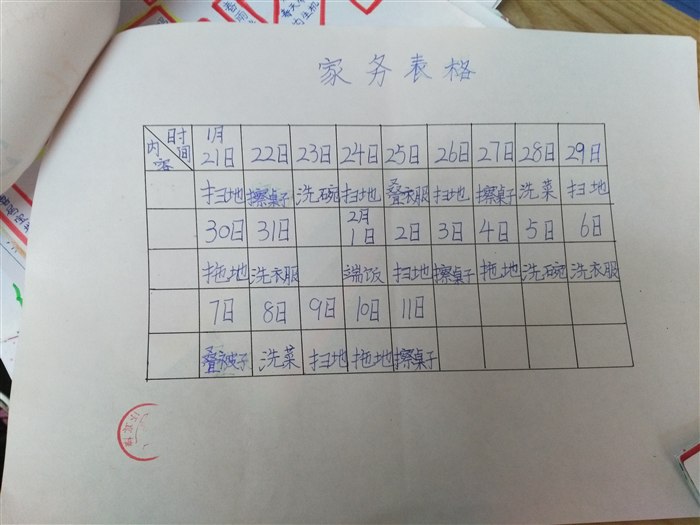 家务表格
时间 内容 1月21日 22日 23日 24日 25日 26日 27日 28日 29日
扫地 擦桌子 洗碗 扫地 叠衣服 扫地 擦桌子 洗菜 扫地
30日 31日 2月1日 2日 3日 4日 5日 6日
拖地 洗衣服 端饭 扫地 擦桌子 拖地 洗碗 洗衣服
7日 8日 9日 10日 11日
叠被子 洗菜 扫地 拖地 擦桌子